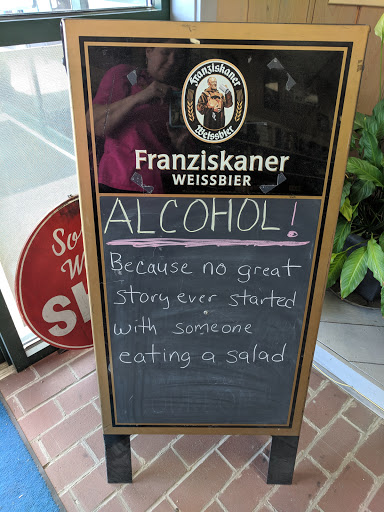 Franziskaner
Weissbier
Franziskaner
WEISSBIER
ALCOHOL!
Because no great
story ever started
with someone
eating a salad
So
W
S